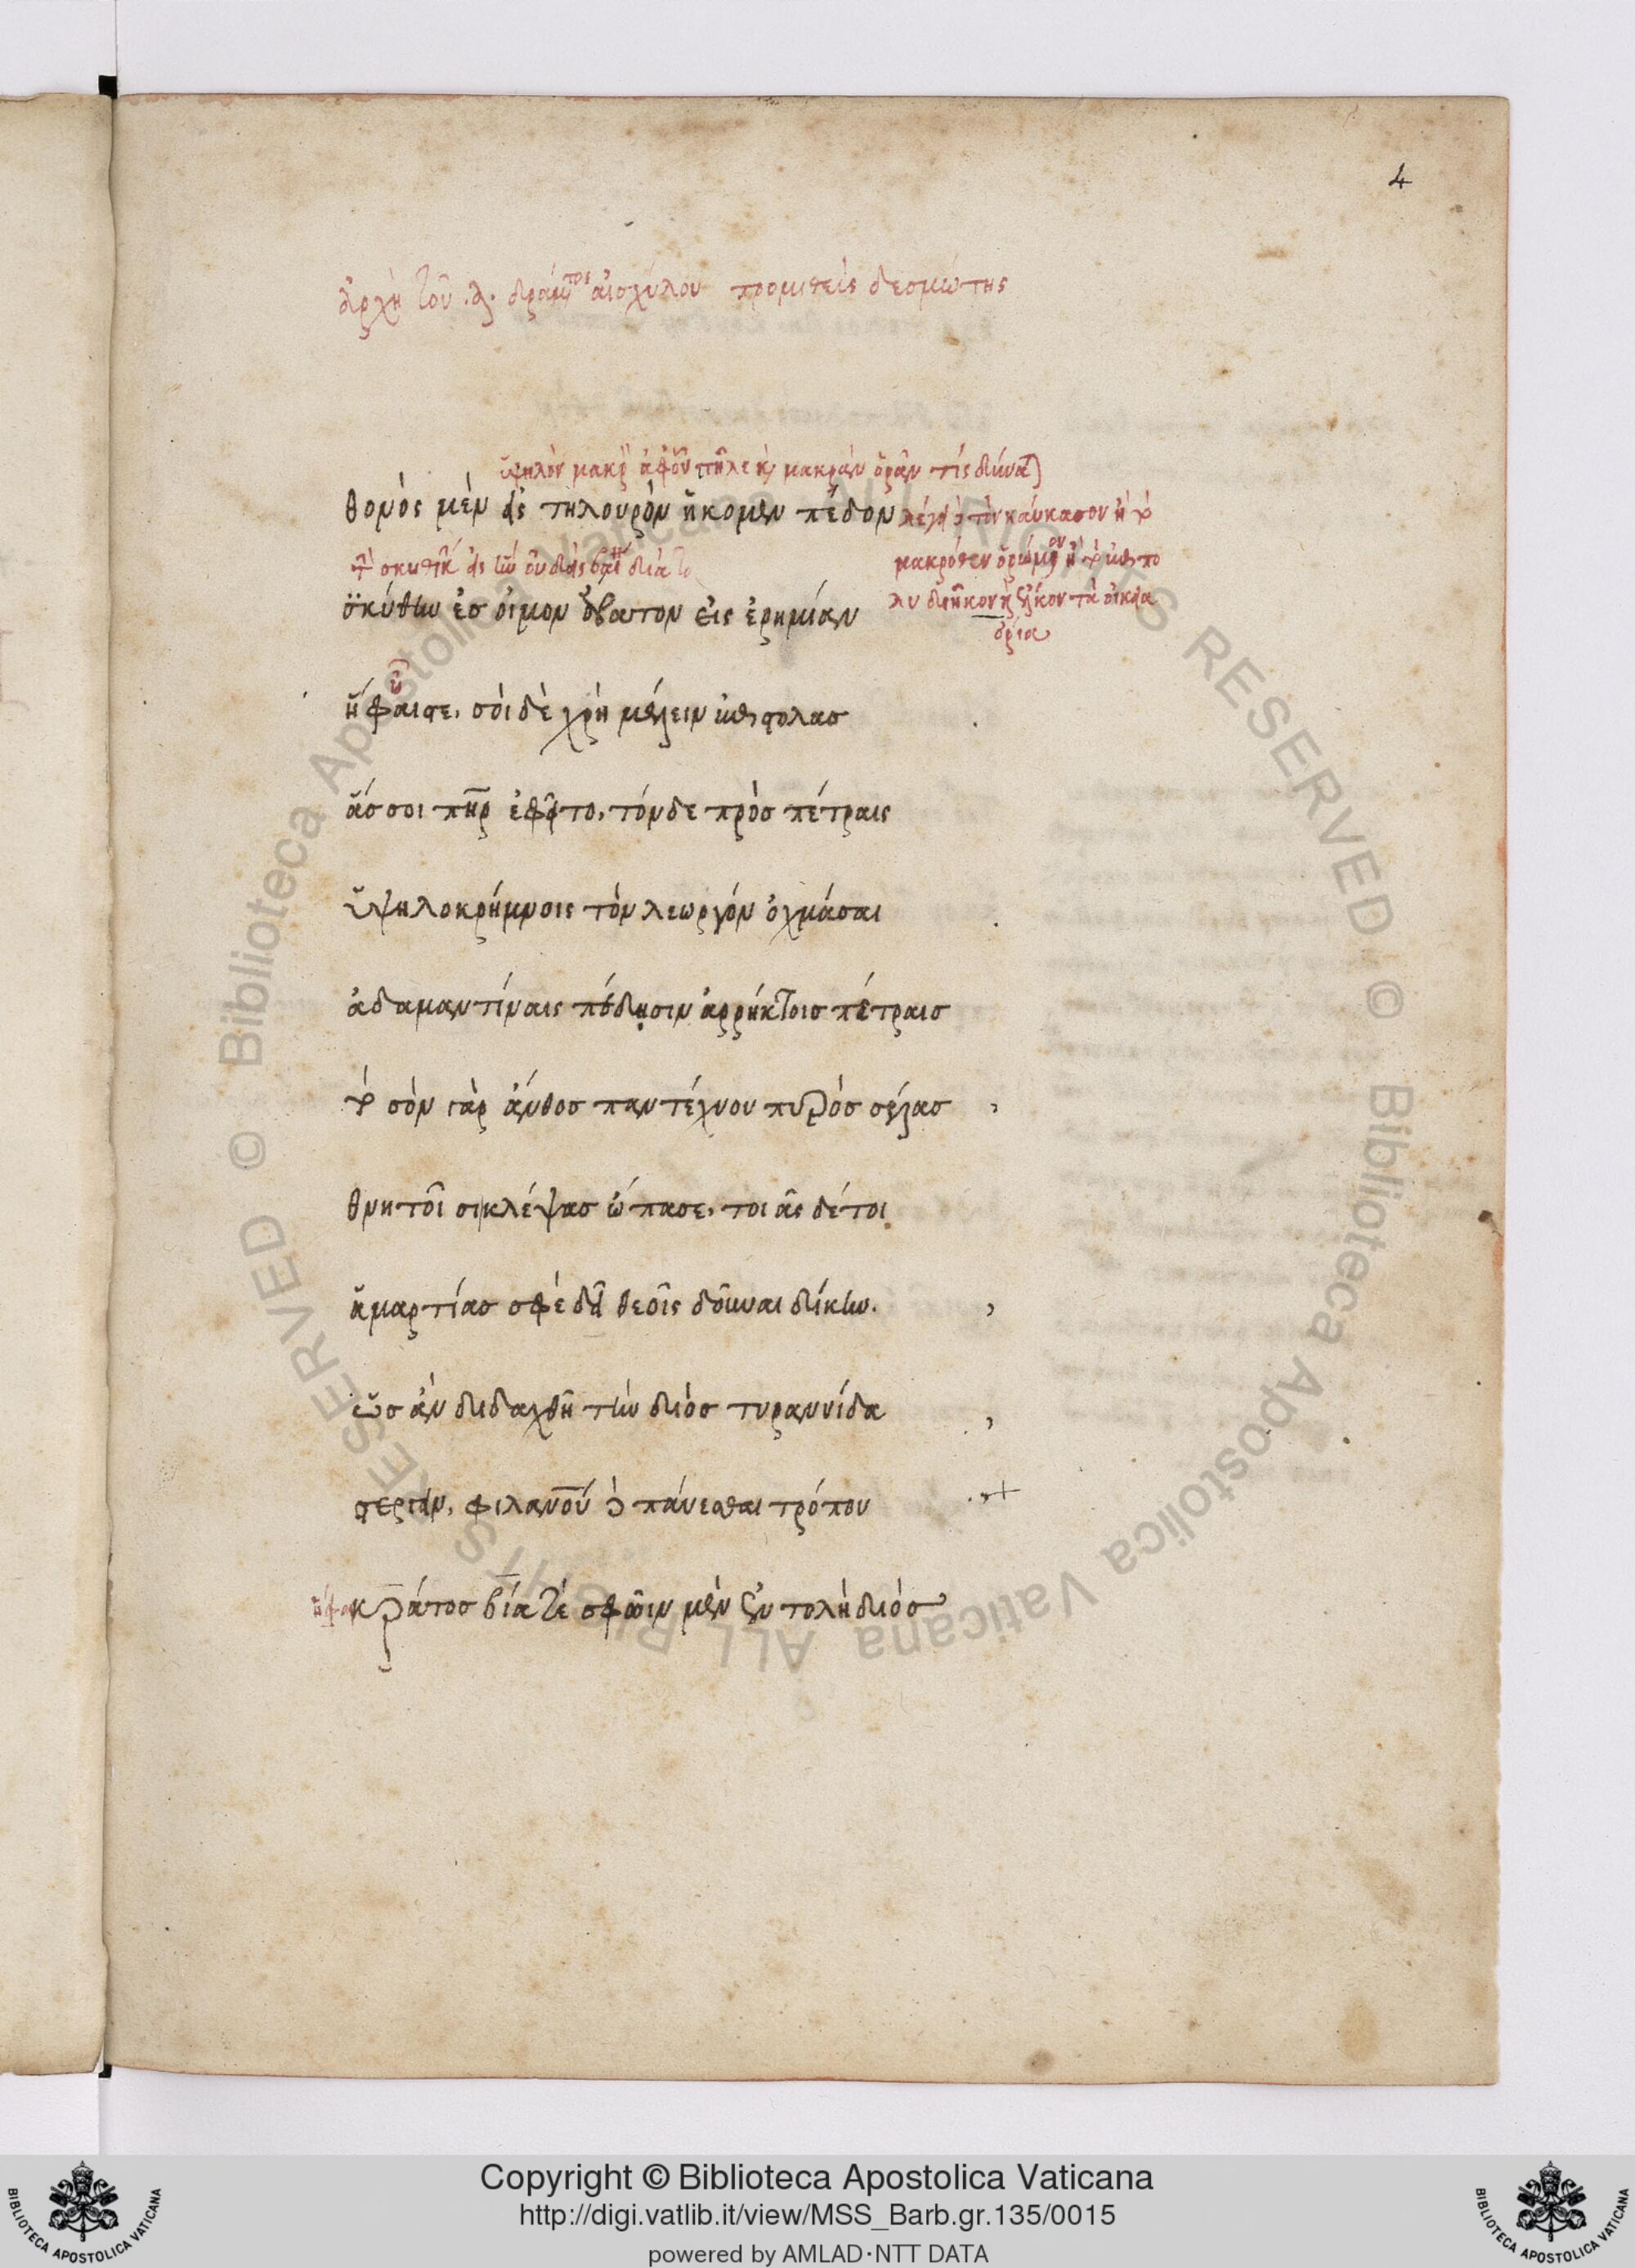 4
ἀρχὴ τοῦ .α. δράμτος αἰσχύλου προμιθεὺς δεσμώτης
ὑψηλὸν μακρ ἀφ' οὗ τῆλε καὶ μακρὰν ὁρᾶν τίς δύναται
θονὸς μὲν εἰς τηλουρὸν ἥκομεν πέδον
τὸν καύκασον ἢ τὸ
μακρόθεν ὁρώμενον ἢ τὸ ἐπιπο
λυ διῆκον καὶ
ὅρια
σκύθην ἐσ οἶμον ἄβατον εἰς ἐρημίαν
ἥφαιστε, σοὶ δὲ χρὴ μέλειν ἐπιστολὰσ
ἅσ σοι πηρ ἐφεῖτο, τόνδε πρὸσ πέτραις
ὑψηλοκρήμνοις τὸν λεωργόν ὀχμάσαι
ἀδαμαντίναις πέδησιν ἀρρήκτοισ πέτραισ
τὸ σὸν γὰρ ἄνθοσ παντέχνου πυρὸσ σέλασ
θνητοῖσι κλέψασ ὤπασε, τοιᾶς δέ τοι
ἁμαρτίασ σφὲ δεῖ θεοῖς δοῦναι δίκην.
ὡσ ἂν διδαχθῆ τὴν διὸσ τυραννίδα
στεργειν, φιλανου δὲ παύεσθαι τρόπου
ἥφαι κράτοσ βία τὲ σφῶιν μὲν ἐντολὴ διὸσ
Copyright © Biblioteca Apostolica Vaticana
http://digi.vatlib.it/view/MSS_Barb.gr.135/0015
powered by AMLAD·NTT DATA
BIBLIOTECA APOSTOLICA VATICANA
BIBLIOTECA APOSTOLICA VATICANA
© Biblioteca Apostolica Vaticana ALL RIGHTS RESERVED © Biblioteca Apostolica Vaticana ALL RIGHTS RESERVED